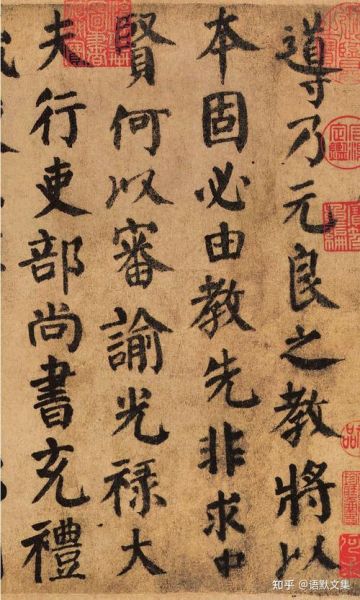 導乃元良之教將以
本固必由教先非求中
賢何以審諭光祿大
夫行吏部尚書充禮
知乎 @语默文集